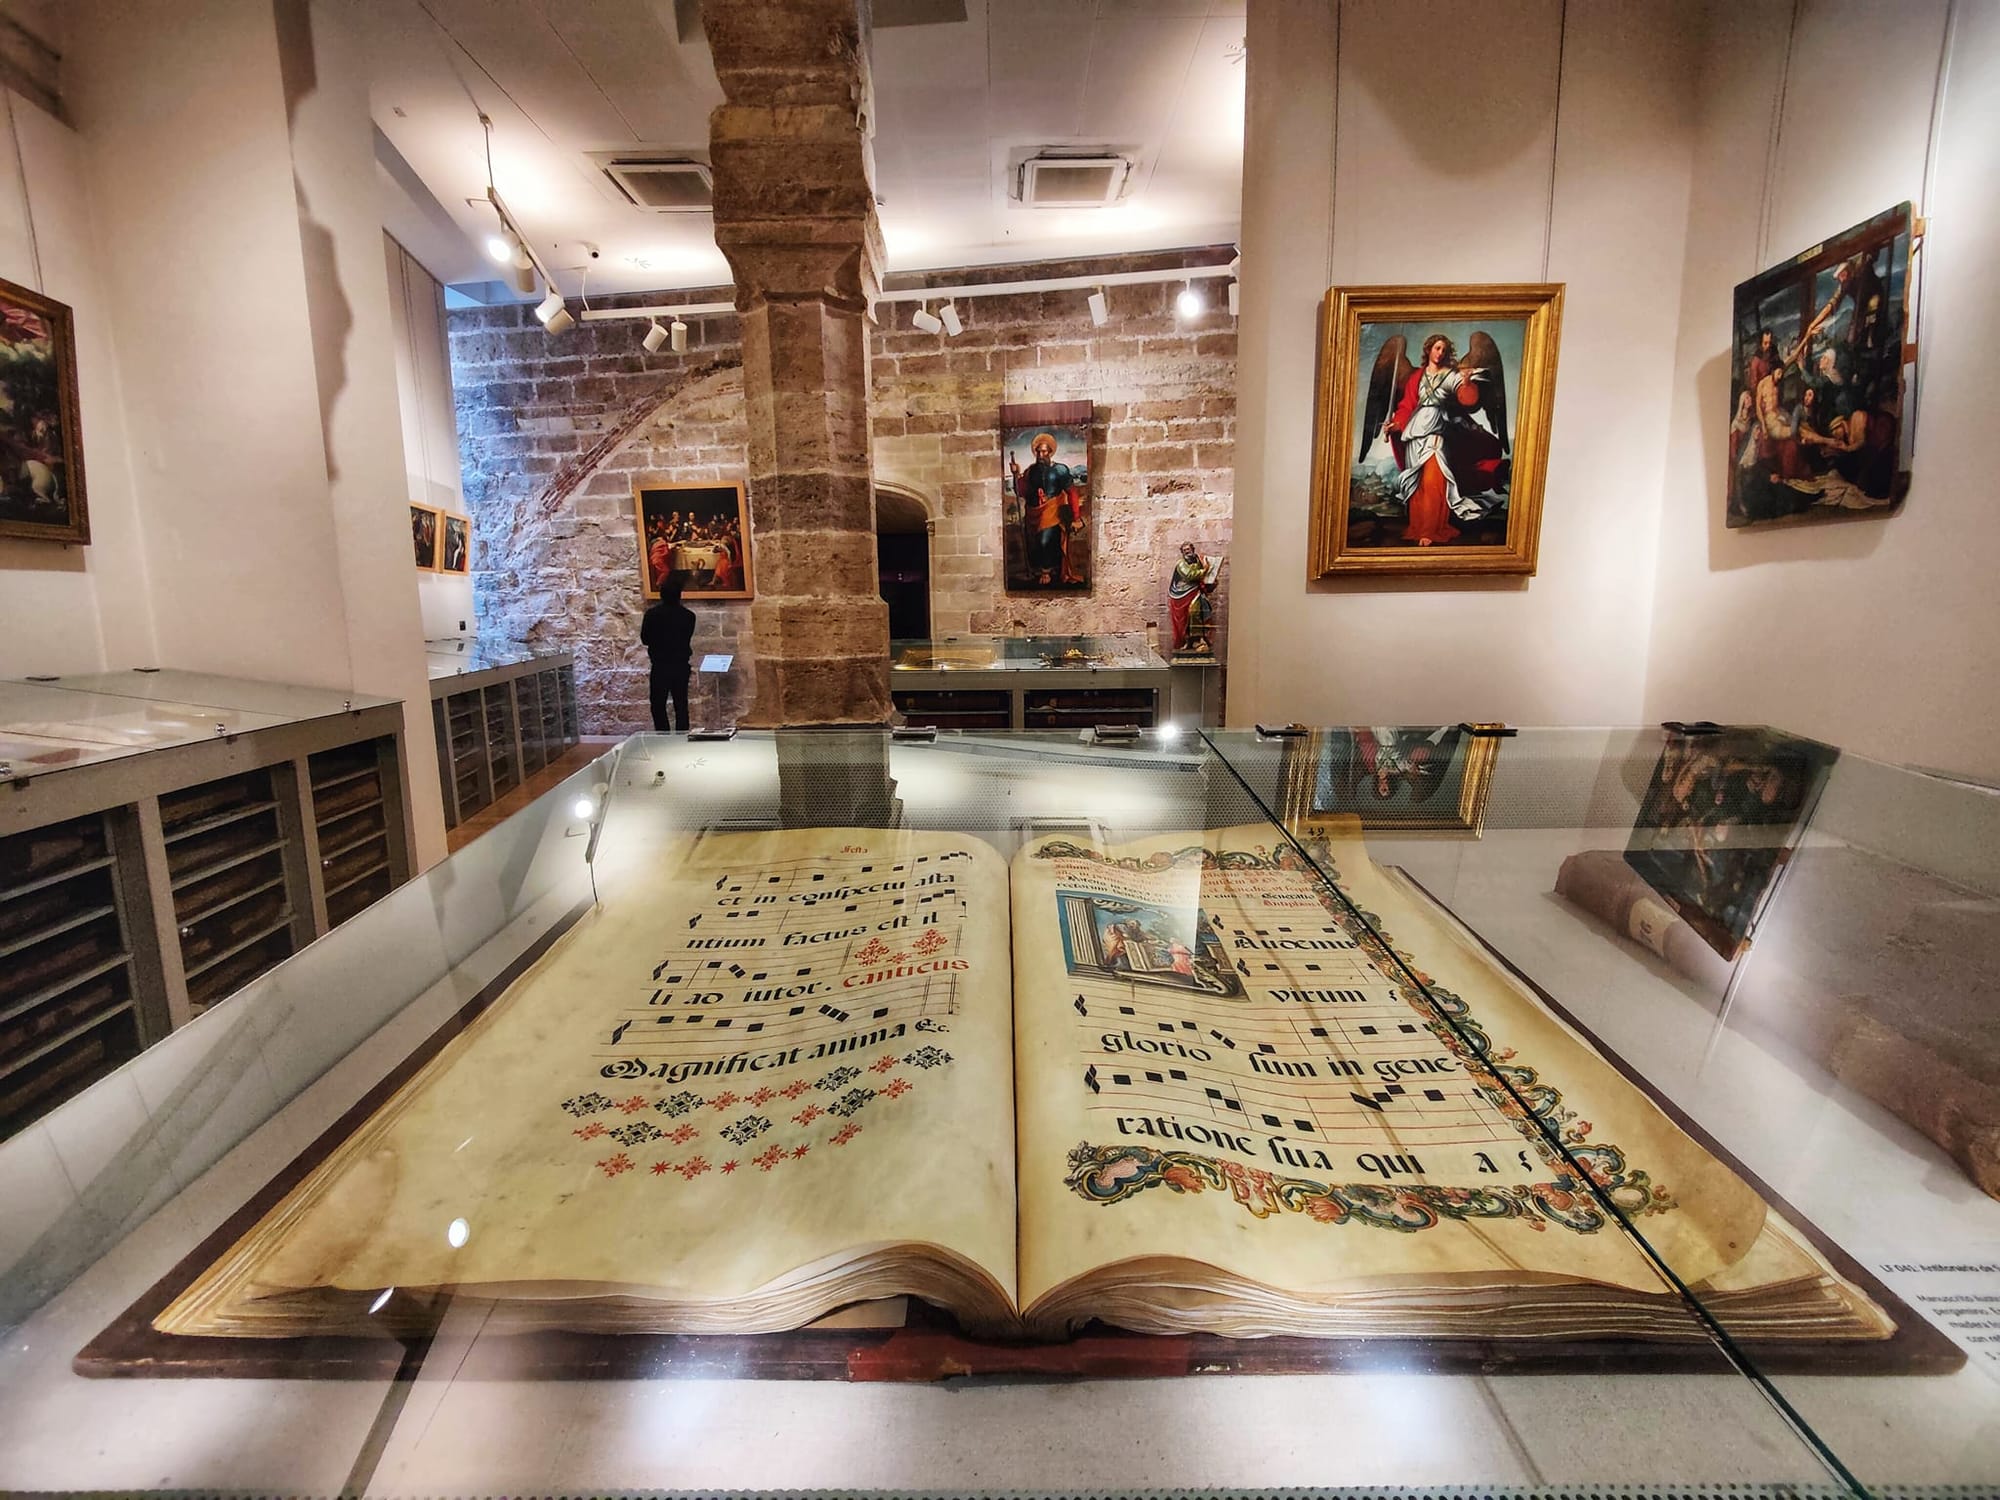 Festa
et in conspectu asta
ntium factus est il
li ad iutor. canticus
Magnificat anima &c.
49
Generatio
Antiphona
Audemu
virum
glorio sum in gene-
ratione sua qui a
LF 041. Antifonario de
Manuscrito
pergamino.
madera
con